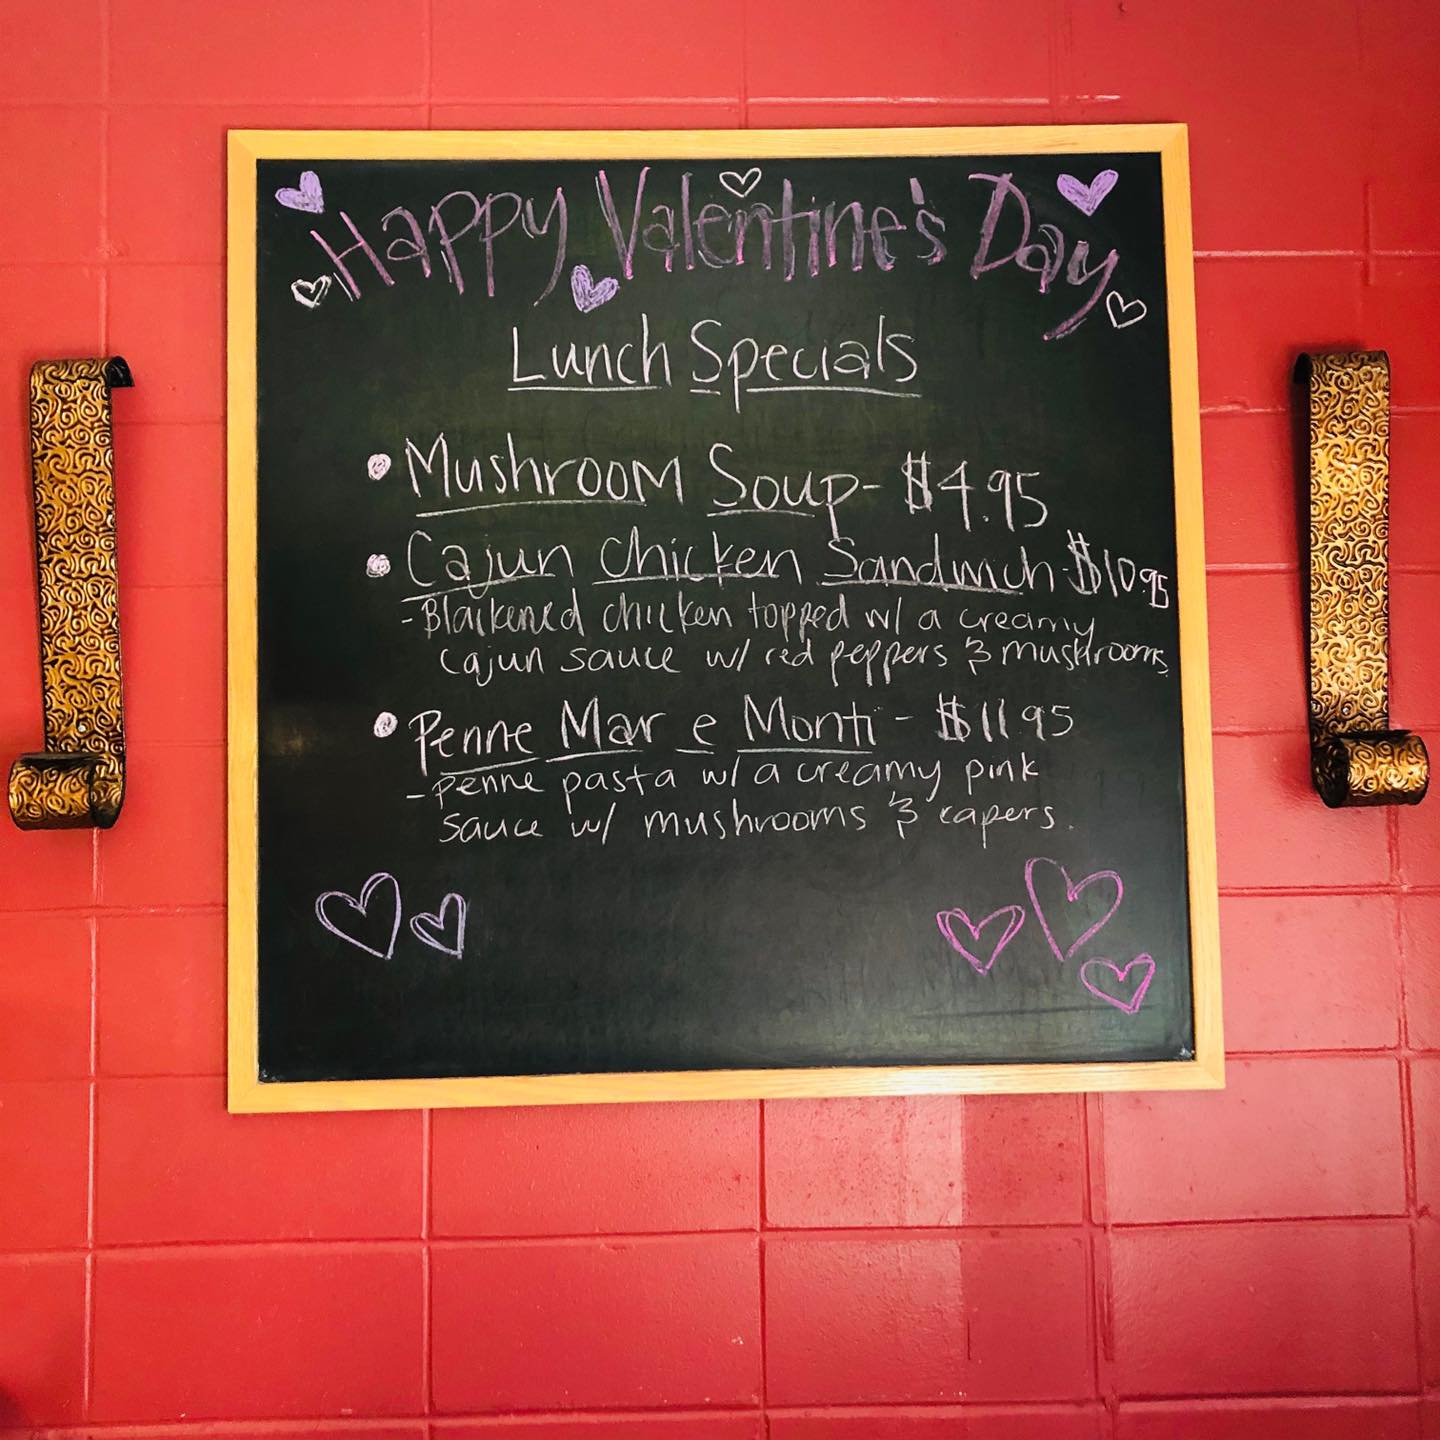 Happy Valentine's Day
Lunch Specials
• Mushroom Soup - $4.95
• Cajun Chicken Sandwich - $10.95
- Blackened chicken topped w/ a creamy
cajun sauce w/ red peppers & mushrooms
• Penne Mar e Monti - $11.95
- Penne pasta w/ a creamy pink
sauce w/ mushrooms & capers.